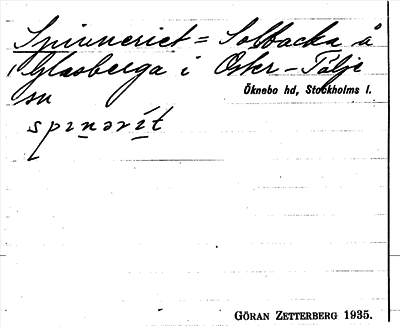 Spinneriet = Solbacka å
Glasberga i Öster-Tälje
sn
Öknebo hd, Stockholms l.
spinərít
GÖRAN ZETTERBERG 1935.